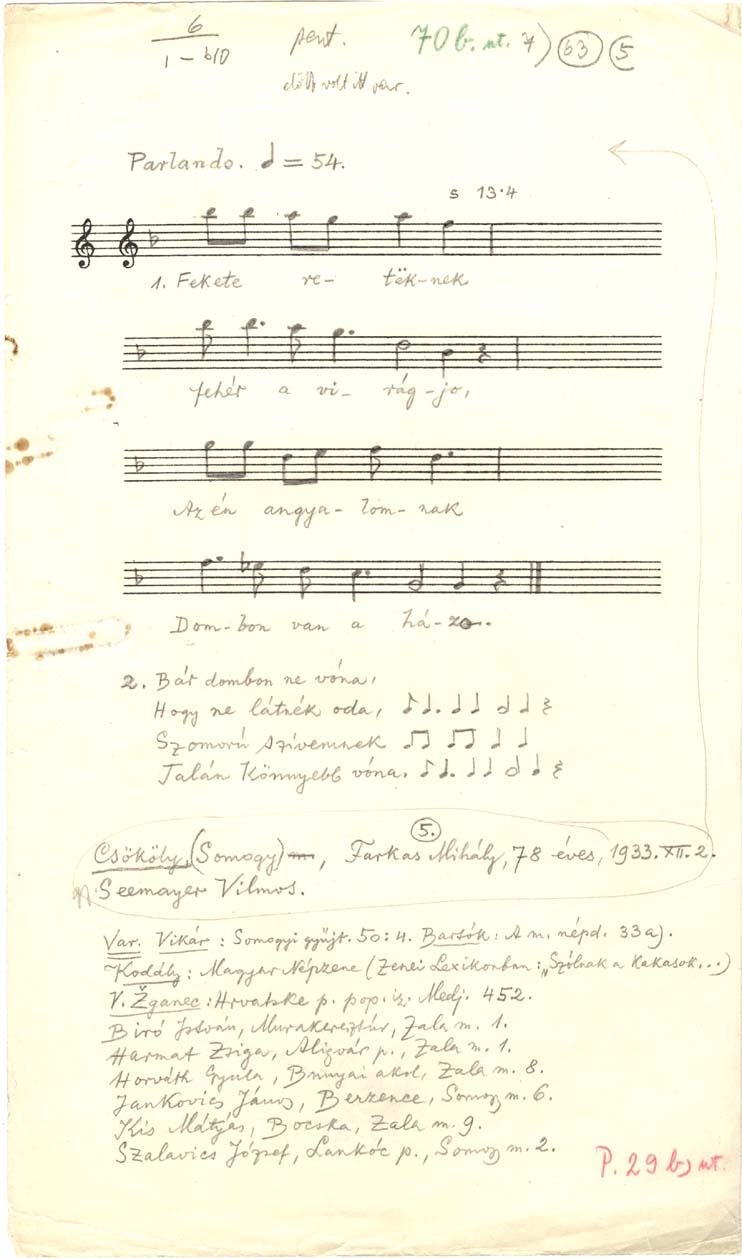 6
1 – b10
pent.
70 b. nt.
63
5
előtt volt itt var.
Parlando. = 54.
s 13·4
1. Fekete re- tëk-nek
fehér a vi- rág-jo,
Az én angya- lom- nak
Dom-bon van a há- zo.
2. Bár dombon ne vóna,
Hogy ne látnék oda,
Szomorú szívemnek
Talán könnyebb vóna.
5.
Csököly, (Somogy) , Farkas Mihály, 78 éves, 1933. XII. 2.
Seemayer Vilmos.
Var. Vikár : Somogyi gyűjt. 50 : 4. Bartók : A m. népd. 33 a).
Kodály : Magyar Népzene (Zenei Lexikonban : „Szólnak a kakasok...)
V. Žganec : Hrvatske p. pop. iz. Medj. 452.
Biró István, Murakeresztúr, Zala m. 1.
Harmat Zsiga, Aligvár p., Zala m. 1.
Horváth Gyula, Bunyai akol, Zala m. 8.
Jankovics János, Berzence, Somogy m. 6.
Kis Mátyás, Bocska, Zala m. 9.
Szalavics József, Lankóc p., Somogy m. 2.
P. 29 b) nt.